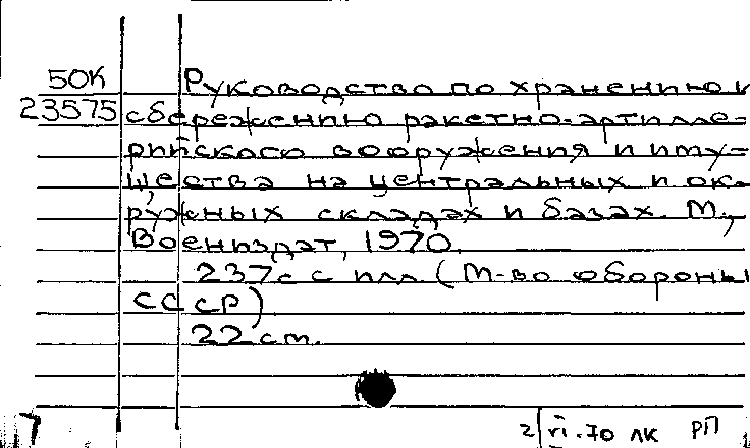 50К Руководство по хранению и
23575 сбережению ракетно-артилле-
рийского вооружения и иму-
щества на центральных и ок-
ружных складах и базах. М.,
Воениздат, 1970.
237с с илл (М-во обороны
СССР)
22 см.
7 2/VI-70 ЛК РП